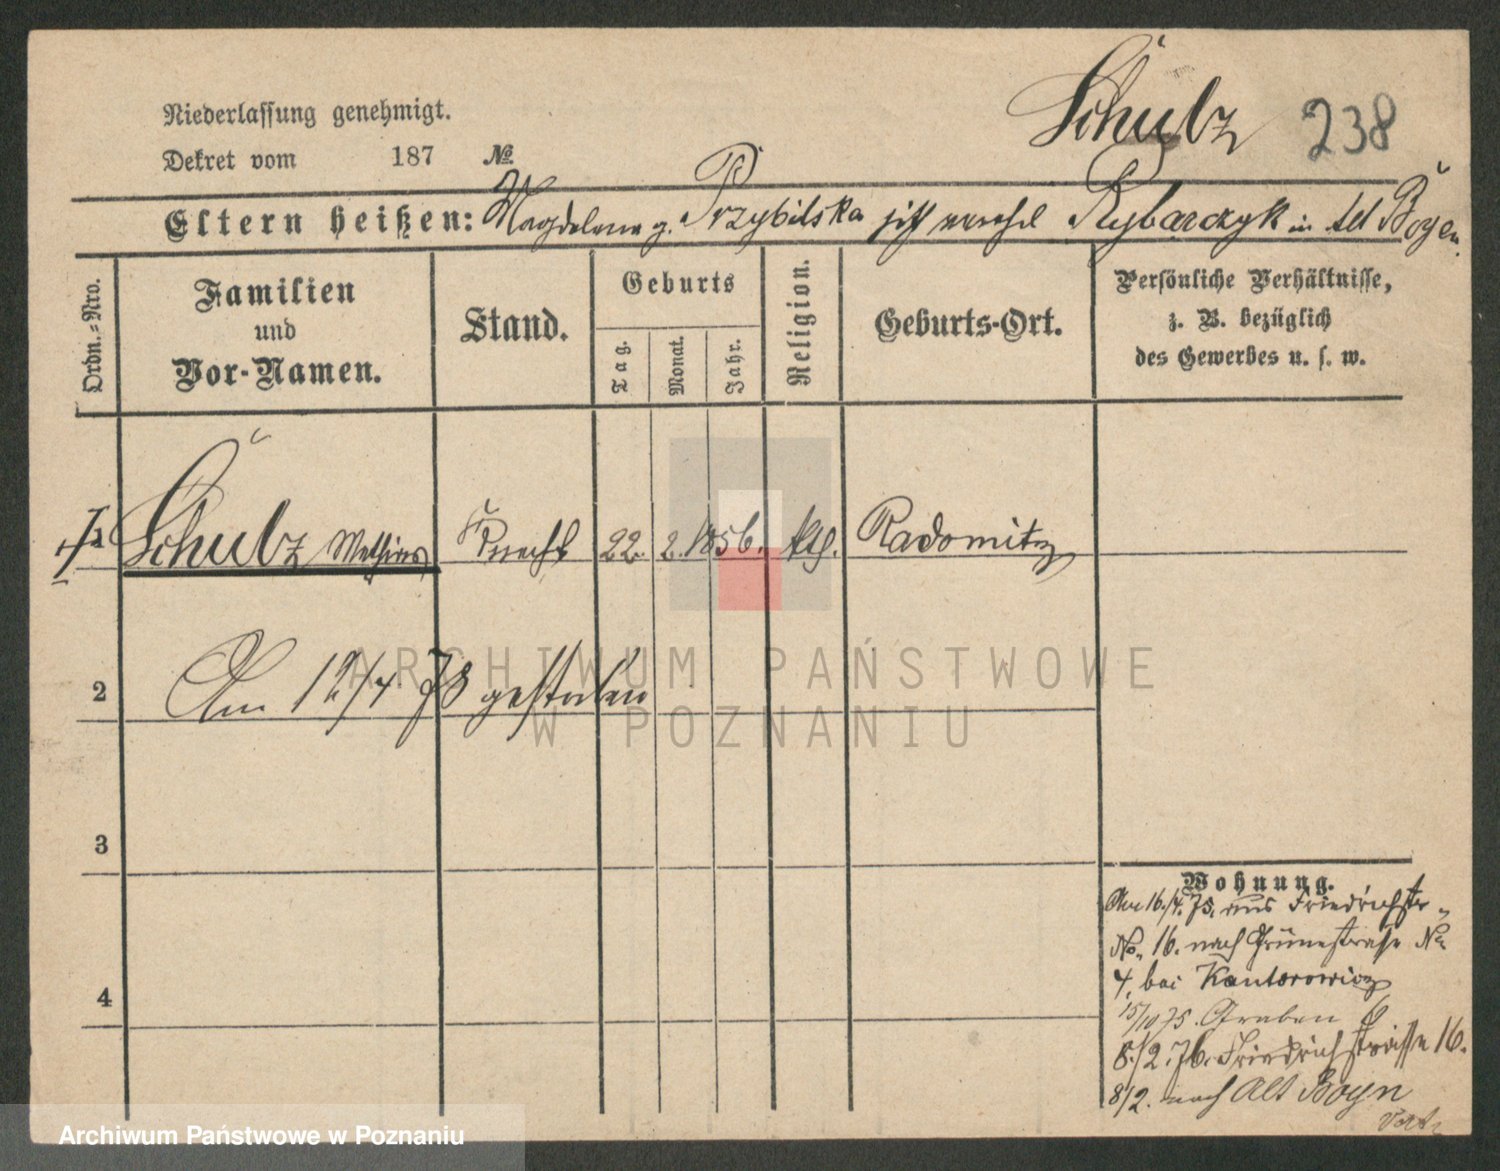 Schulz 238
Niederlassung genehmigt.
Dekret vom 187 №
Eltern heißen: Magdalena g. Przybilska jetzt verehel Rybarczyk in Alt Boyen.
Ordn.-Nro.
Familien
und
Vor-Namen.
Stand.
Geburts
Tag.
Monat.
Jahr.
Religion.
Geburts-Ort.
Persönliche Verhältnisse,
z. B. bezüglich
des Gewerbes u. s. w.
1 Schulz Mathias Knecht 22. 2. 1856. kth. Radomitz
2 Am 12/4 78 gestorben
3
4
Wohnung.
Am 16./4. 75. aus Friedrichstr
No. 16. nach Grünestrasse No
4, bei Kantorowicz
15/10 75. Graben 6
8./2. 76. Friedrichstrasse 16.
8/2. nach Alt Boyn
ARCHIWUM PAŃSTWOWE
W POZNANIU
Archiwum Państwowe w Poznaniu